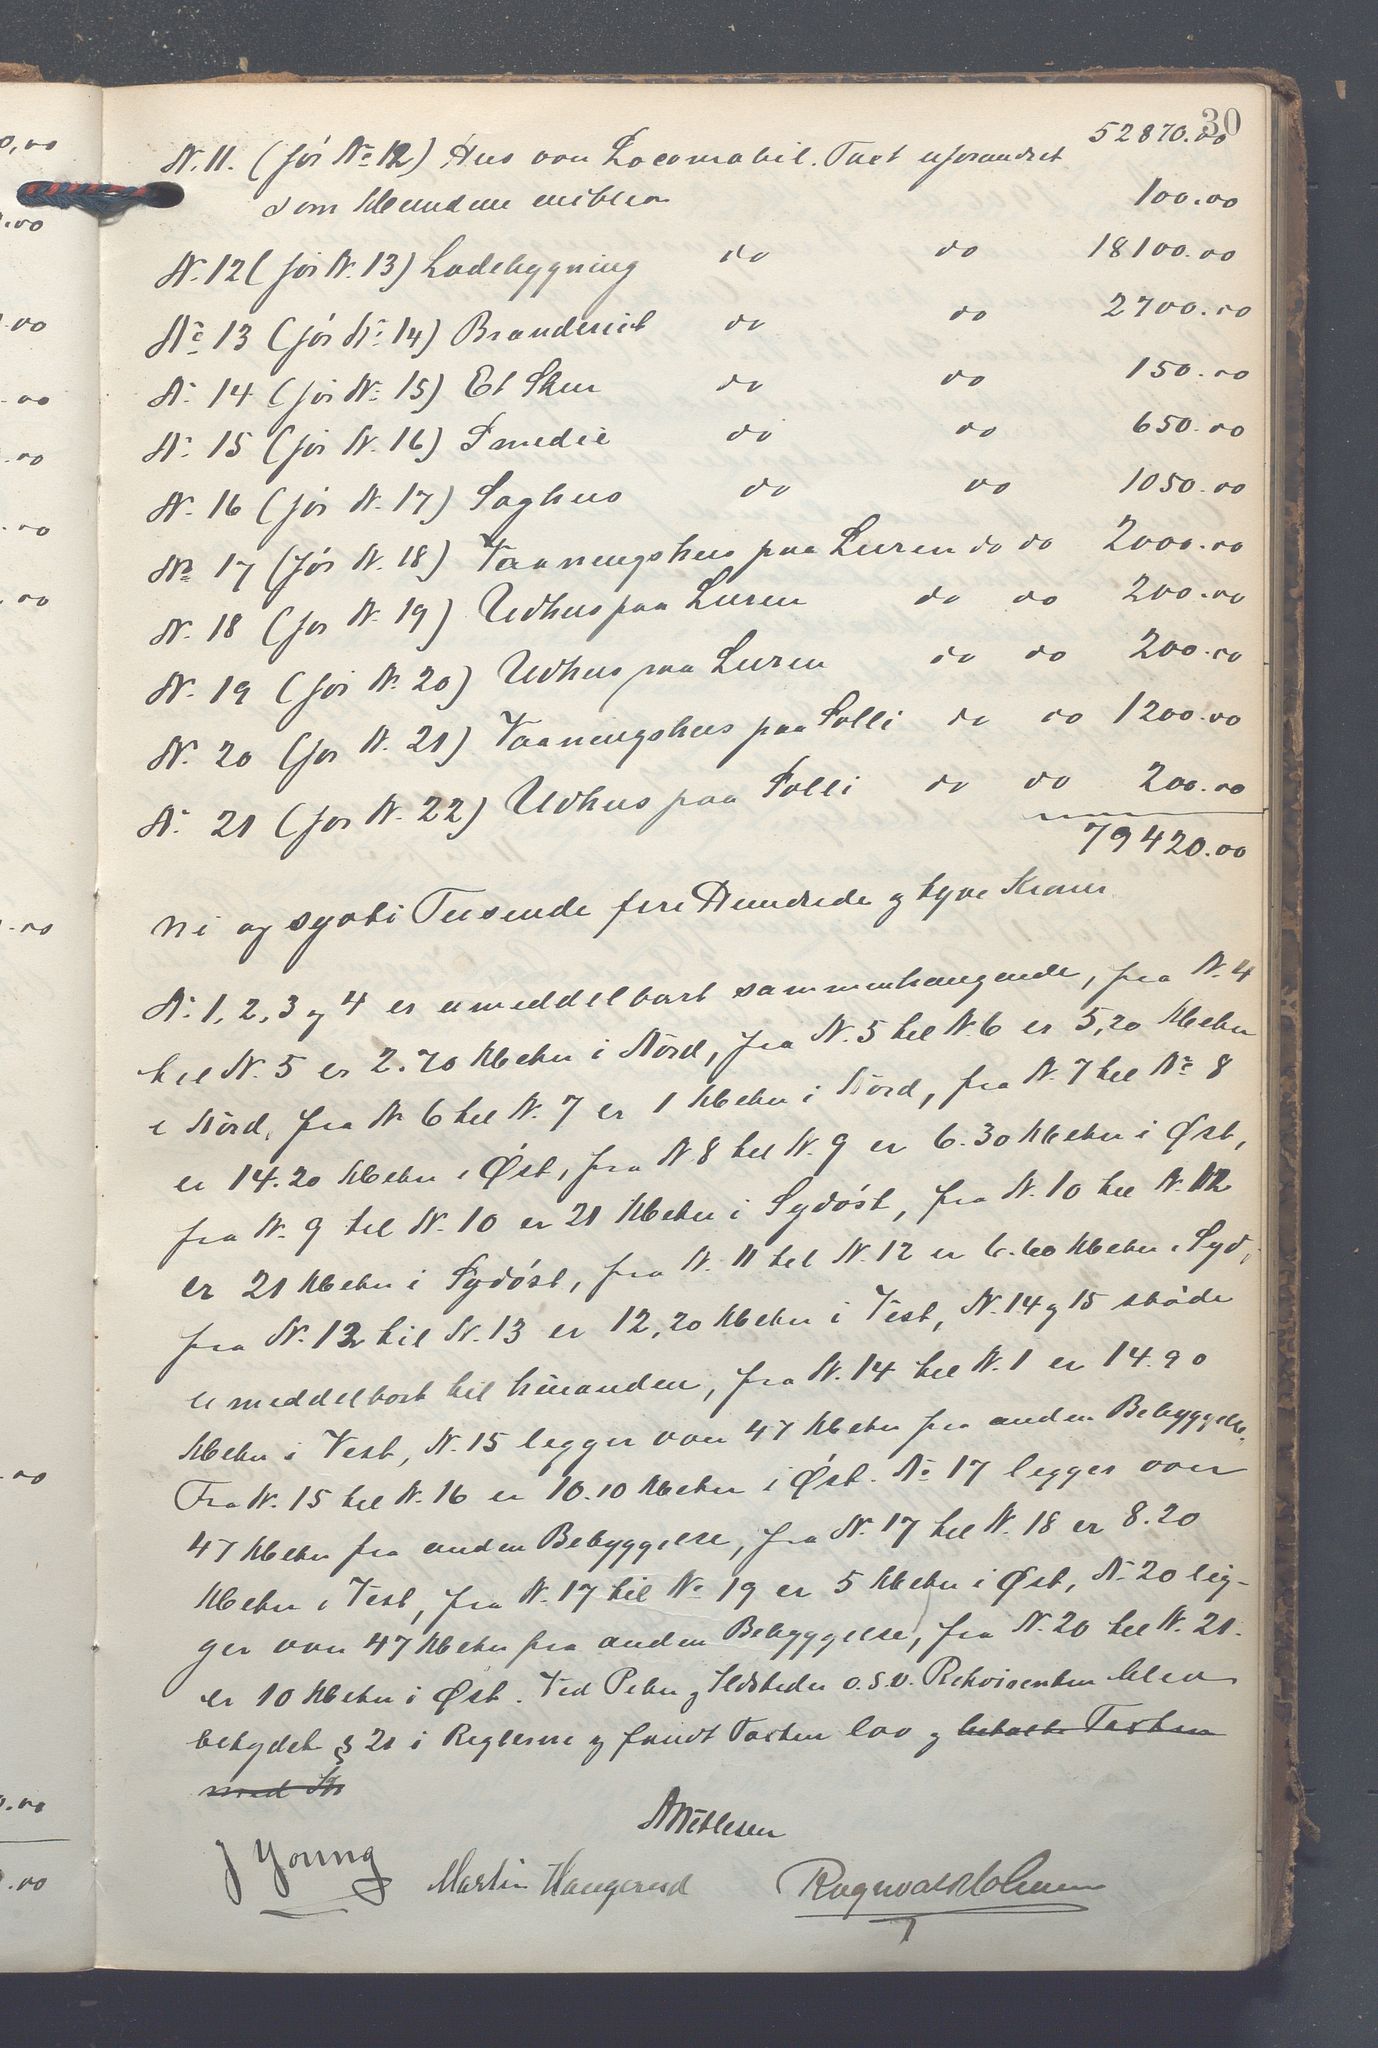 30
52870.00
N. 11. (før No 12) Hus over Locomobil. Taxt uforandret
som Kunden
100.00
N. 12 (før N. 13) Ladebygning do do 18100.00
No 13 (før No 14) Brænderiet do do 2700.00
N. 14 (før No 15) Et Skur do do 150.00
N. 15 (før N. 16) Smedie do do 650.00
N. 16 (før N. 17) Saghus do do 1050.00
No 17 (før N. 18) Vaaningshus paa Luren do do 2000.00
N. 18 (før N. 19) Udhus paa Luren do do 200.00
N. 19 (før N. 20) Udhus paa Luren do do 200.00
N. 20 (før N. 21) Vaaningshus paa Solli do do 1200.00
N. 21 (før N. 22) Udhus paa Solli do do 200.00
79420.00
Ni og sytti Tusende fire Hundrede og tyve Kroner.
N. 1, 2, 3 og 4 er umeddelbart sammenhængende, fra N. 4
til N. 5 er 2.70 Meter i Nord, fra N. 5 til N. 6 er 5,20 Meter
i Nord, fra N 6 til N. 7 er 1 Meter i Nord, fra N. 7 til No 8
er 14.20 Meter i Øst, fra N 8 til N. 9 er 6.30 Meter i Øst,
fra N. 9 til N. 10 er 21 Meter i Sydøst, fra N. 10 til N. 12
er 21 Meter i Sydøst, fra N. 11 til N. 12 er 6.60 Meter i Syd,
fra N. 12 til N. 13 er 12,20 Meter i Vest, N. 14 og 15 støder
umeddelbart til hinanden, fra N. 14 til N. 1 er 14.90
Meter i Vest, N. 15 legger over 47 Meter fra anden Bebyggelse.
Fra N. 15 til N. 16 er 10.10 Meter i Øst. No 17 legger over
47 Meter fra anden Bebyggelse, fra N. 17 til N. 18 er 8.20
Meter i Vest, fra N. 17 til No 19 er 5 Meter i Øst, N. 20 lig-
ger over 47 Meter fra anden Bebyggelse, fra N. 20 til N. 21.
er 10 Meter i Øst. Ved Peber og Ildsteder o.s.v. Rekvisenten blev
betydet § 21 i Reglerne og fandt Taxten lav og betalte Taxten
med Kr
A Netlesen
J Young Martin Haugerud Ragnvald Holmen